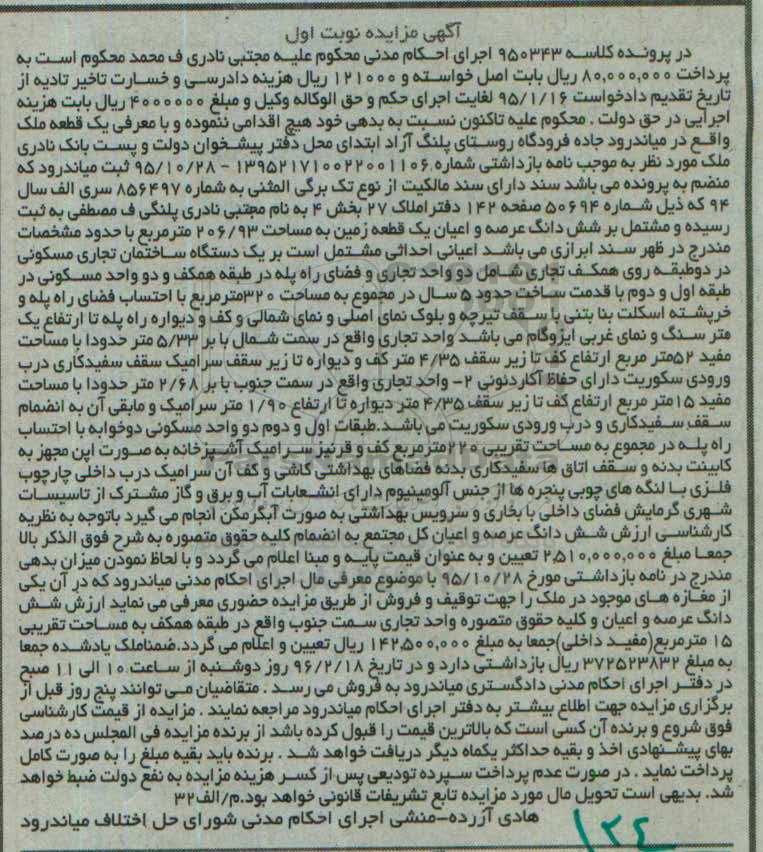 آگهی مزایده نوبت اول
در پرونده کلاسه ۹۵۰۳۴۳ اجرای احکام مدنی محکوم علیه مجتبی نادری ف محمد محکوم است به
پرداخت ۸۰,۰۰۰,۰۰۰ ریال بابت اصل خواسته و ۱۲۱۰۰۰ ریال هزینه دادرسی و خسارت تاخیر تادیه از
تاریخ تقدیم دادخواست ۹۵/۱/۱۶ لغایت اجرای حکم و حق الوکاله وکیل و مبلغ ۴۰۰۰۰۰۰ ریال بابت هزینه
اجرایی در حق دولت . محکوم علیه تاکنون نسبت به بدهی خود هیچ اقدامی ننموده و با معرفی یک قطعه ملک
واقع در میاندرود جاده فرودگاه روستای پلنگ آزاد ابتدای محل دفتر پیشخوان دولت و پست بانک نادری
ملک مورد نظر به موجب نامه بازداشتی شماره ۱۳۹۵۲۱۷۱۰۰۲۲۰۰۱۱۰۶ – ۹۵/۱۰/۲۸ ثبت میاندرود که
منضم به پرونده می باشد سند دارای سند مالکیت از نوع تک برگی المثنی به شماره ۸۵۶۴۹۷ سری الف سال
۹۴ که ذیل شماره ۵۰۶۹۴ صفحه ۱۴۲ دفتر املاک ۲۷ بخش ۴ به نام مجتبی نادری پلنگی ف مصطفی به ثبت
رسیده و مشتمل بر شش دانگ عرصه و اعیان یک قطعه زمین به مساحت ۲۰۶/۹۳ مترمربع با حدود مشخصات
مندرج در ظهر سند ابرازی می باشد اعیانی احداثی مشتمل است بر یک دستگاه ساختمان تجاری مسکونی
در دوطبقه روی همکف تجاری شامل دو واحد تجاری و فضای راه پله در طبقه همکف و دو واحد مسکونی در
طبقه اول و دوم با قدمت ساخت حدود ۵ سال در مجموع به مساحت ۳۲۰مترمربع با احتساب فضای راه پله و
خرپشته اسکلت بنا بتنی با سقف تیرچه و بلوک نمای اصلی و نمای شمالی و کف و دیواره راه پله تا ارتفاع یک
متر سنگ و نمای غربی ایزوگام می باشد واحد تجاری واقع در سمت شمال با بر ۵/۳۳ متر حدودا با مساحت
مفید ۵۲متر مربع ارتفاع کف تا زیر سقف ۴/۳۵ متر کف و دیواره تا زیر سقف سرامیک سقف سفیدکاری درب
ورودی سکوریت دارای حفاظ آکاردئونی ۲- واحد تجاری واقع در سمت جنوب با بر ۲/۶۸ متر حدودا با مساحت
مفید ۱۵متر مربع ارتفاع کف تا زیر سقف ۴/۳۵ متر دیواره تا ارتفاع ۱/۹۰ متر سرامیک و مابقی آن به انضمام
سقف سفیدکاری و درب ورودی سکوریت می باشد.طبقات اول و دوم دو واحد مسکونی دوخوابه با احتساب
راه پله در مجموع به مساحت تقریبی ۲۲۰مترمربع کف و قرنیز سرامیک آشپزخانه به صورت اپن مجهز به
کابینت بدنه و سقف اتاق ها سفیدکاری بدنه فضاهای بهداشتی کاشی و کف آن سرامیک درب داخلی چارچوب
فلزی با لنگه های چوبی پنجره ها از جنس آلومینیوم دارای انشعابات آب و برق و گاز مشترک از تاسیسات
شهری گرمایش فضای داخلی با بخاری و سرویس بهداشتی به صورت آبگرمکن انجام می گیرد باتوجه به نظریه
کارشناسی ارزش شش دانگ عرصه و اعیان کل مجتمع به انضمام کلیه حقوق متصوره به شرح فوق الذکر بالا
جمعا مبلغ ۲,۵۱۰,۰۰۰,۰۰۰ تعیین و به عنوان قیمت پایه و مبنا اعلام می گردد و با لحاظ نمودن میزان بدهی
مندرج در نامه بازداشتی مورخ ۹۵/۱۰/۲۸ با موضوع معرفی مال اجرای احکام مدنی میاندرود که در آن یکی
از مغازه های موجود در ملک را جهت توقیف و فروش از طریق مزایده حضوری معرفی می نماید ارزش شش
دانگ عرصه و اعیان و کلیه حقوق متصوره واحد تجاری سمت جنوب واقع در طبقه همکف به مساحت تقریبی
۱۵ مترمربع(مفید داخلی)جمعا به مبلغ ۱۴۲,۵۰۰,۰۰۰ ریال تعیین و اعلام می گردد.ضمناملک یادشده جمعا
به مبلغ ۳۷۲۵۲۳۸۳۲ ریال بازداشتی دارد و در تاریخ ۹۶/۲/۱۸ روز دوشنبه از ساعت ۱۰ الی ۱۱ صبح
در دفتر اجرای احکام مدنی دادگستری میاندرود به فروش می رسد . متقاضیان می توانند پنج روز قبل از
برگزاری مزایده جهت اطلاع بیشتر به دفتر اجرای احکام میاندرود مراجعه نمایند . مزایده از قیمت کارشناسی
فوق شروع و برنده آن کسی است که بالاترین قیمت را قبول کرده باشد از برنده مزایده فی المجلس ده درصد
بهای پیشنهادی اخذ و بقیه حداکثر یکماه دیگر دریافت خواهد شد . برنده باید بقیه مبلغ را به صورت کامل
پرداخت نماید . در صورت عدم پرداخت سپرده تودیعی پس از کسر هزینه مزایده به نفع دولت ضبط خواهد
شد. بدیهی است تحویل مال مورد مزایده تابع تشریفات قانونی خواهد بود.م/الف۳۲
هادی آزرده–منشی اجرای احکام مدنی شورای حل اختلاف میاندرود
۱۲۴